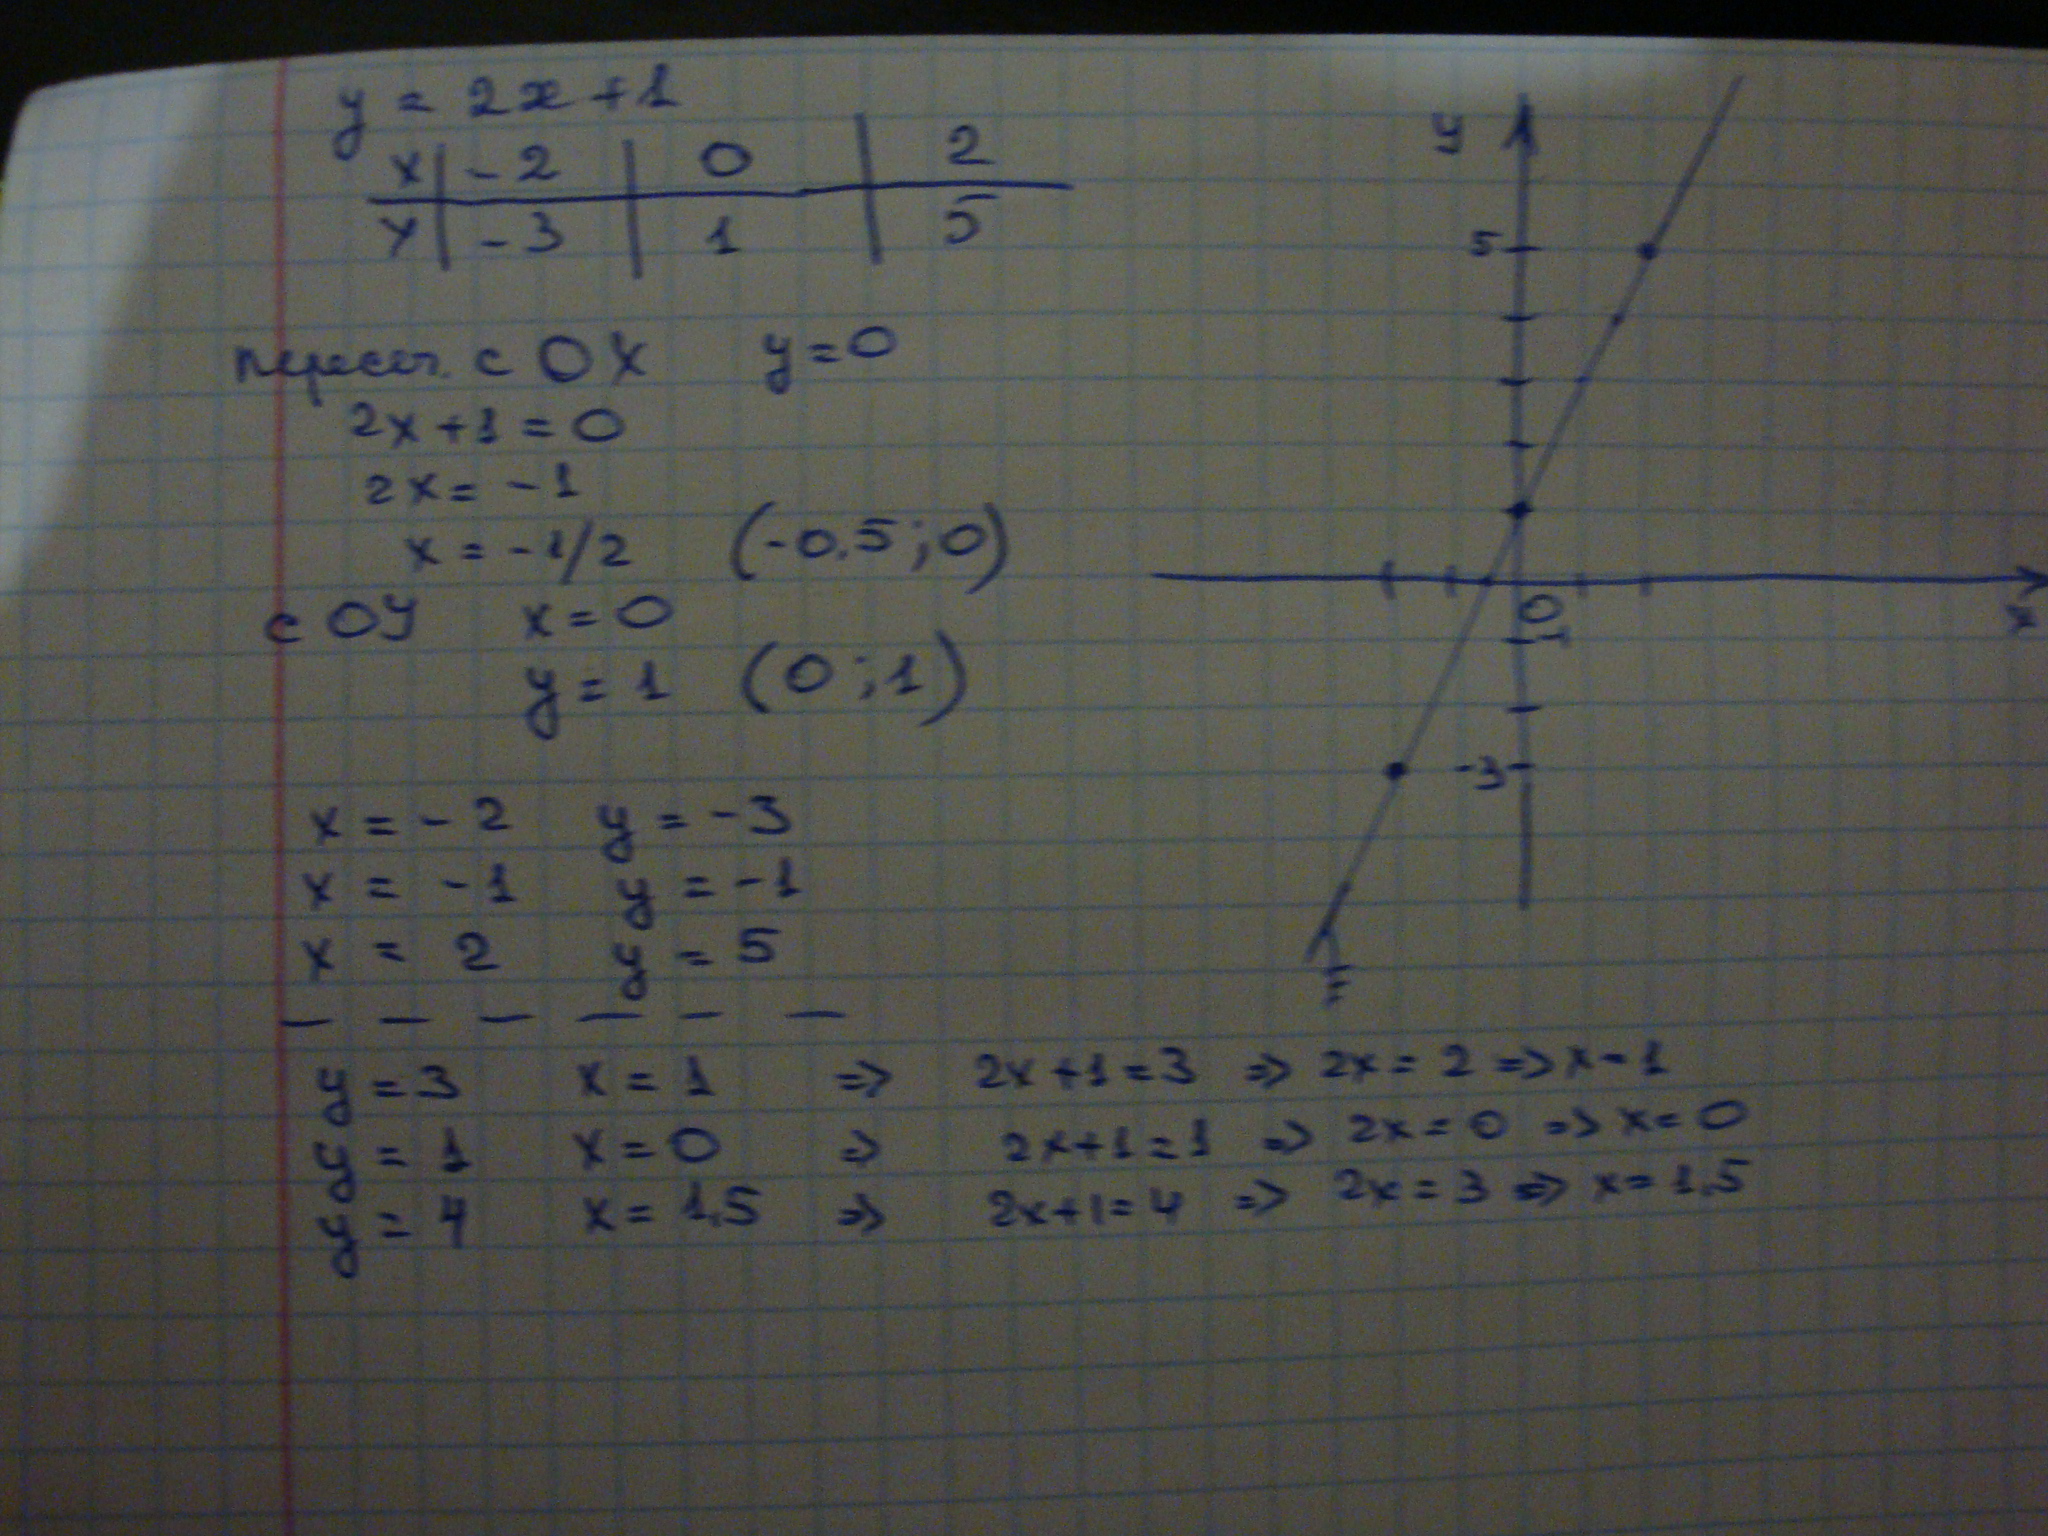 y = 2x + 1
x | -2 | 0 | 2
y | -3 | 1 | 5
пересеч. с OX y = 0
2x + 1 = 0
2x = -1
x = -1/2 (-0,5 ; 0)
с OY x = 0
y = 1 (0 ; 1)
x = -2 y = -3
x = -1 y = -1
x = 2 y = 5
— — — — — —
y = 3 x = 1 => 2x + 1 = 3 => 2x = 2 => x - 1
y = 1 x = 0 => 2x + 1 = 1 => 2x = 0 => x = 0
y = 4 x = 1,5 => 2x + 1 = 4 => 2x = 3 => x = 1,5
y
5
0
x
-3